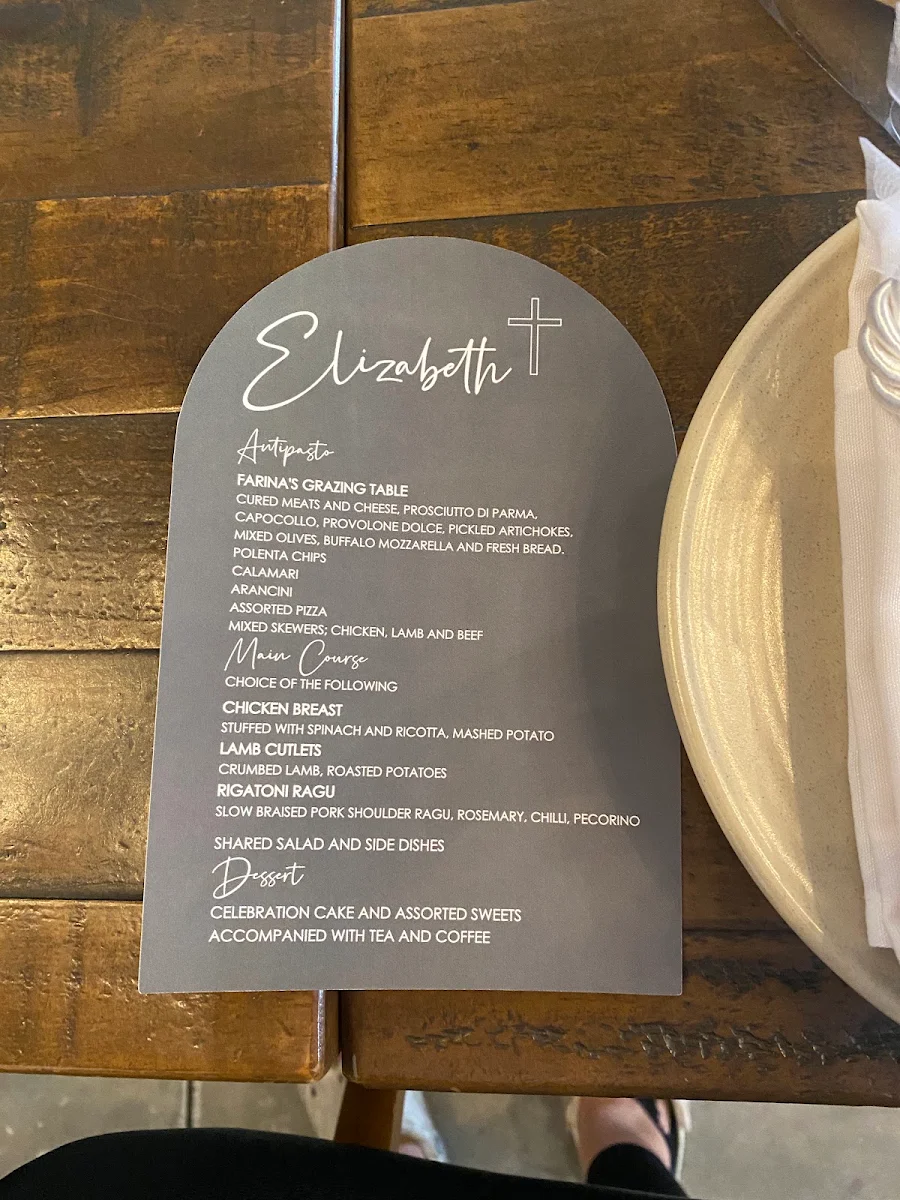 Elizabeth
Antipasto
FARINA'S GRAZING TABLE
CURED MEATS AND CHEESE, PROSCIUTTO DI PARMA,
CAPOCOLLO, PROVOLONE DOLCE, PICKLED ARTICHOKES,
MIXED OLIVES, BUFFALO MOZZARELLA AND FRESH BREAD.
POLENTA CHIPS
CALAMARI
ARANCINI
ASSORTED PIZZA
MIXED SKEWERS; CHICKEN, LAMB AND BEEF
Main Course
CHOICE OF THE FOLLOWING
CHICKEN BREAST
STUFFED WITH SPINACH AND RICOTTA, MASHED POTATO
LAMB CUTLETS
CRUMBED LAMB, ROASTED POTATOES
RIGATONI RAGU
SLOW BRAISED PORK SHOULDER RAGU, ROSEMARY, CHILLI, PECORINO
SHARED SALAD AND SIDE DISHES
Dessert
CELEBRATION CAKE AND ASSORTED SWEETS
ACCOMPANIED WITH TEA AND COFFEE